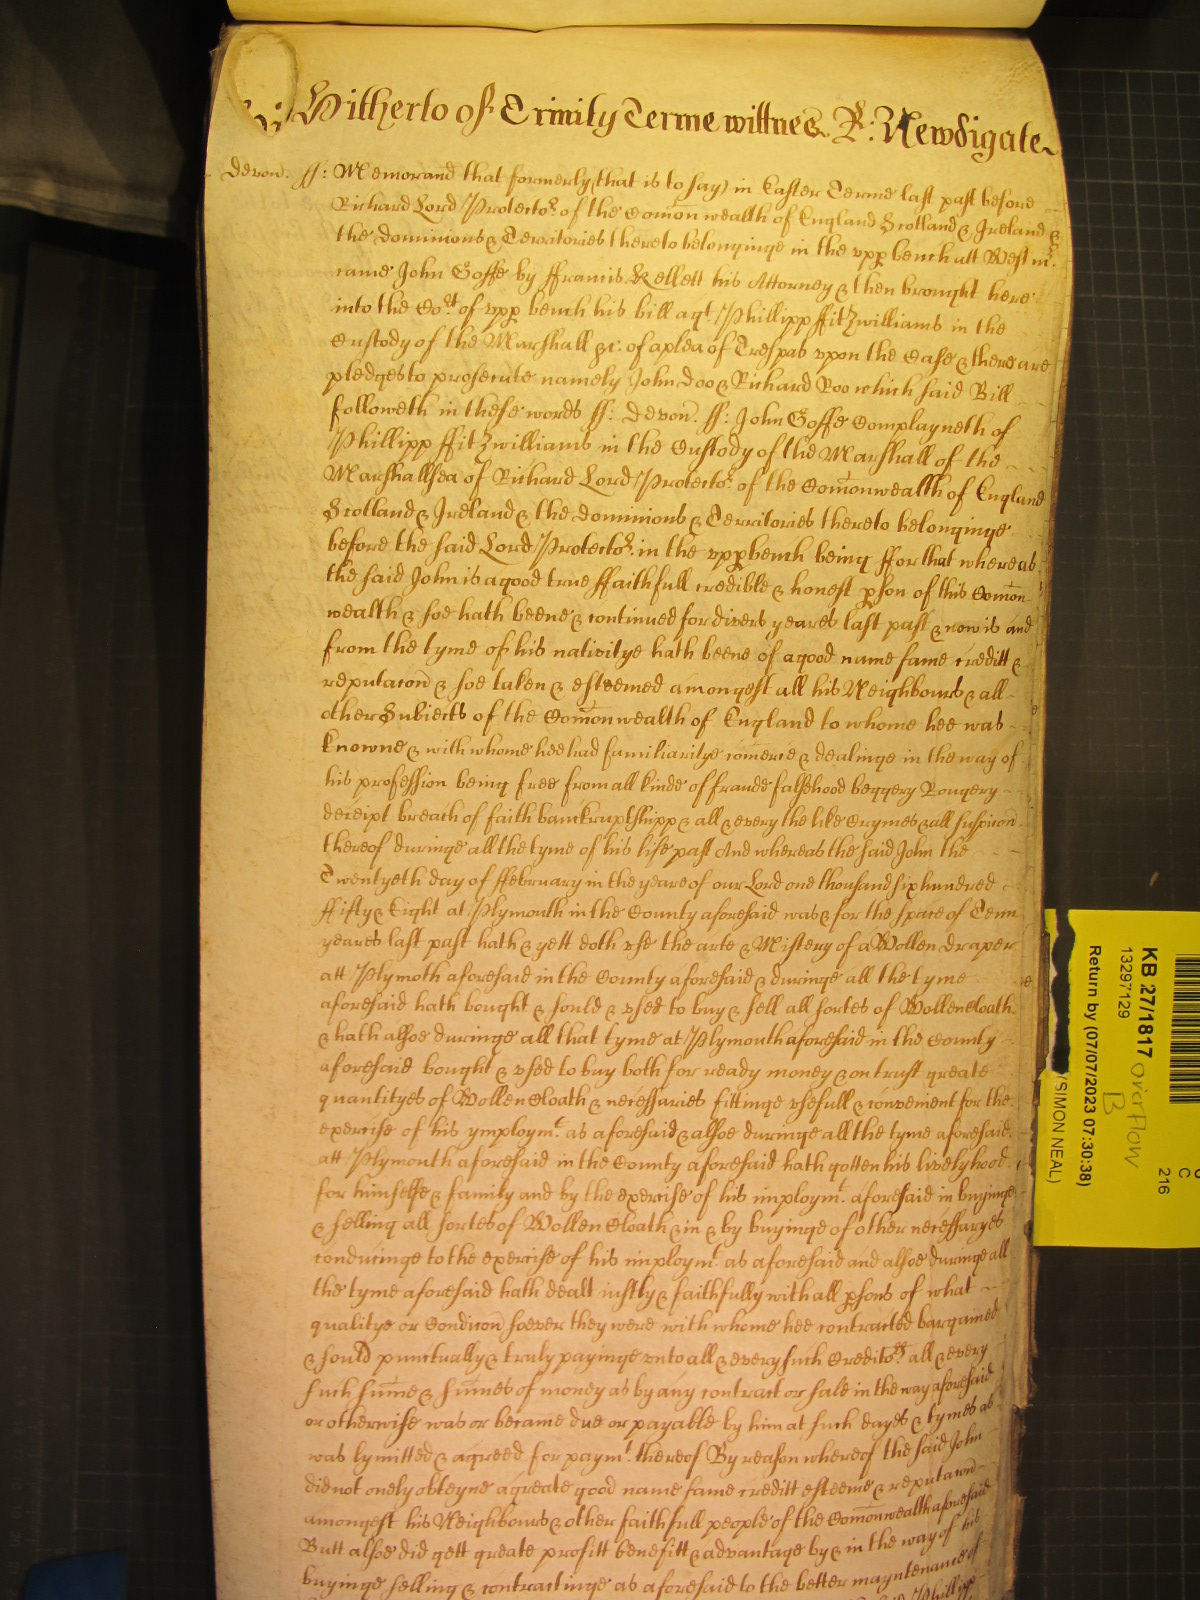 Hitherto of Trinity Terme wittnes R: Newdigate
Devon. ss: Memorand that formerly (that is to say) in Easter Terme last past before
Richard Lord Protector of the Comon wealth of England Scotland & Ireland &
the dominions & Territories thereto belonginge in the vpp bench att Westmr.
came John Goffe by ffrancis Kellett his Attorney & then brought here
into the Cort of vpp bench his bill agt. Phillipp ffitzwilliams in the
Custody of the Marshall &c: of a plea of Trespas vpon the Case & there are
pledges to prosecute namely John Doo & Richard Roo which said Bill
followeth in these words ss: Devon. ss: John Goffe Complayneth of
Phillipp ffitzwilliams in the Custody of the Marshall of the
Marshallsea of Richard Lord Protector of the Comonwealth of England
Scotland & Ireland & the dominions & Territories thereto belonginge
before the said Lord Protector in the vpp bench being ffor that whereas
the said John is a good true ffaithfull credible & honest pson of this Comon
wealth & soe hath beene & continued for divers yeares last past & now is and
from the tyme of his nativitye hath beene of a good name fame creditt &
reputacon & soe taken & esteemed amongest all his Neighbours & all
other Subiects of the Comonwealth of England to whome hee was
knowne & with whome hee had familiaritye comerce & dealinge in the way of
his profession being free from all kinde of fraude falsehood beggery Rougery
deceipt breach of faith banckruptshipp & all & every the like Crymes & all suspicon
thereof duringe all the tyme of his life past And whereas the said John the
Twentyeth day of ffebruary in the yeare of our Lord one thousand six hundred
ffifty & Eight at Plymouth in the County aforesaid was & for the space of Tenn
yeares last past hath & yett doth vse the arte & Mistery of a Wollen draper
att Plymoth aforesaid in the County aforesaid & duringe all the tyme
aforesaid hath bought & sould & vsed to buy & sell all sortes of Wollen Cloath
& hath alsoe duringe all that tyme at Plymouth aforesaid in the County
aforesaid bought & vsed to buy both for ready money & on trust greate
quantityes of Wollen Cloath & necessaries fittinge vsefull & convenient for the
exercise of his ymploymt. as aforesaid & alsoe duringe all the tyme aforesaid
att Plymouth aforesaid in the County aforesaid hath gotten his livelyhood
for himselfe & family and by the exercise of his imploymt. aforesaid in buyinge
& selling all sortes of Wollen Cloath & in & by buyinge of other necessaryes
conducinge to the exercise of his imploymt. as aforesaid and alsoe duringe all
the tyme aforesaid hath dealt iustly & faithfully with all psons of what
qualitye or Condicon soever they were with whome hee contracted bargained
& sould punctually & truly payinge vnto all & every such Creditors all & every
such sume & sumes of money as by any contract or sale in the way aforesaid
or otherwise was or became due or payable by him at such dayes & tymes as
was lymitted & agreed for paymt. thereof By reason whereof the said John
did not onely obteyne a greate good name fame creditt esteeme & reputacon
amongest his Neighbours & other faithfull people of the Comonwealth aforesaid
Butt alsoe did gett greate profitt benefitt & advantage by & in the way of his
buyinge selling & contractinge as aforesaid to the better mayntenance of
Phillipp
KB 27/1817 overflow
B
13297129
Return by (07/07/2023 07:30:38)
(SIMON NEAL)
C
216